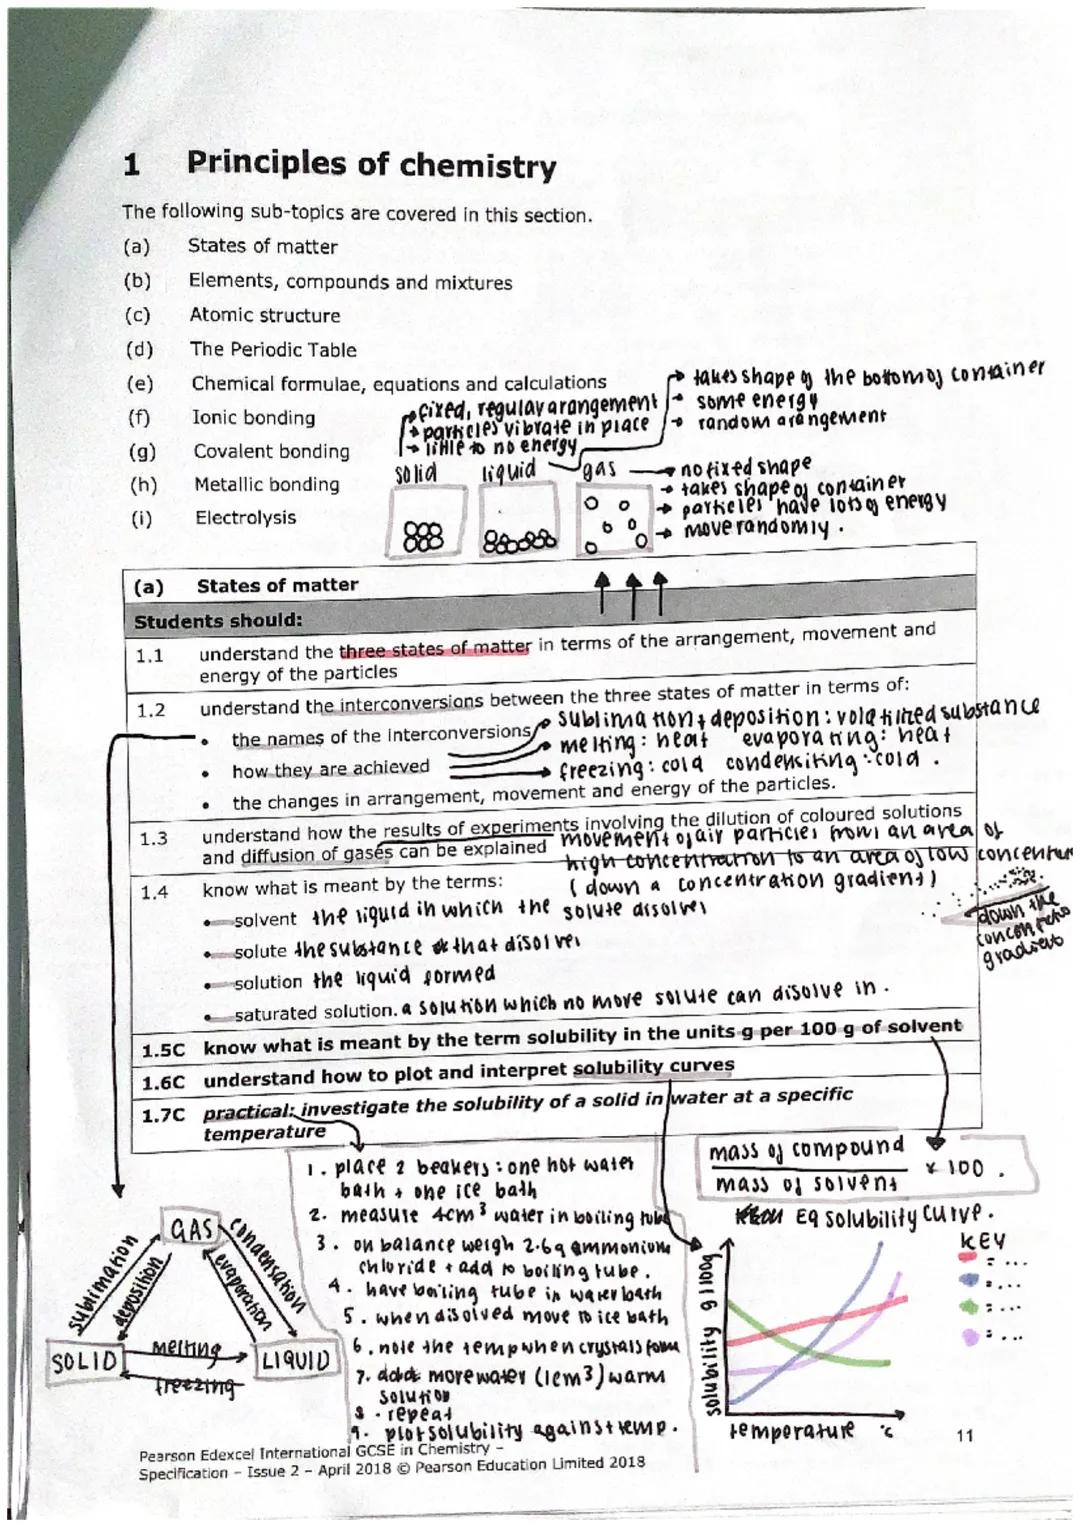 1 Principles of chemistry
The following sub-topics are covered in this section.
(a) States of matter
(b) Elements, compounds and mixtures
(c) Atomic structure
(d) The Periodic Table
(e) Chemical formulae, equations and calculations
(f) Ionic bonding
(g) Covalent bonding
(h) Metallic bonding
(i) Electrolysis
→ fixed, regular arangement
→ particles vibrate in place
→ little to no energy
→ takes shape of the bottom of container
→ some energy
→ random arangement
solid liquid gas
→ no fixed shape
→ takes shape of container
→ particles have lots of energy
→ move randomly.
(a) States of matter
Students should:
1.1 understand the three states of matter in terms of the arrangement, movement and
energy of the particles
1.2 understand the interconversions between the three states of matter in terms of:
• the names of the interconversions
sublimation + deposition: volatilized substance
• how they are achieved
melting: heat evaporating: heat
freezing: cold condensiting: cold.
• the changes in arrangement, movement and energy of the particles.
1.3 understand how the results of experiments involving the dilution of coloured solutions
and diffusion of gases can be explained
movement of air particles from an area of
high concentration to an area of low
(down a concentration gradient)
down the
gradient
1.4 know what is meant by the terms:
• solvent the liquid in which the solute dissolves
• solute the substance that disolves
• solution the liquid formed
• saturated solution. a solution which no more solute can disolve in.
1.5C know what is meant by the term solubility in the units g per 100 g of solvent
1.6C understand how to plot and interpret solubility curves
1.7C practical: investigate the solubility of a solid in water at a specific
temperature
mass of compound
mass of solvent
× 100.
1. place 2 beakers: one hot water
bath + one ice bath
2. measure 4cm³ water in boiling tube
3. on balance weigh 2.6g ammonium
chloride + add to boiling tube.
4. have boiling tube in water bath
5. when disolved move to ice bath
6. note the temp when crystals form
7. add more water (1cm³) warm
solution
8. repeat
9. plot solubility against temp.
GAS
SOLID
LIQUID
sublimation
deposition
condensation
evaporation
melting
freezing
Eg solubility curve.
KEY
= ...
= ...
= ...
= ...
solubility g/100g
temperature °c
Pearson Edexcel International GCSE in Chemistry –
Specification – Issue 2 – April 2018 © Pearson Education Limited 2018
11